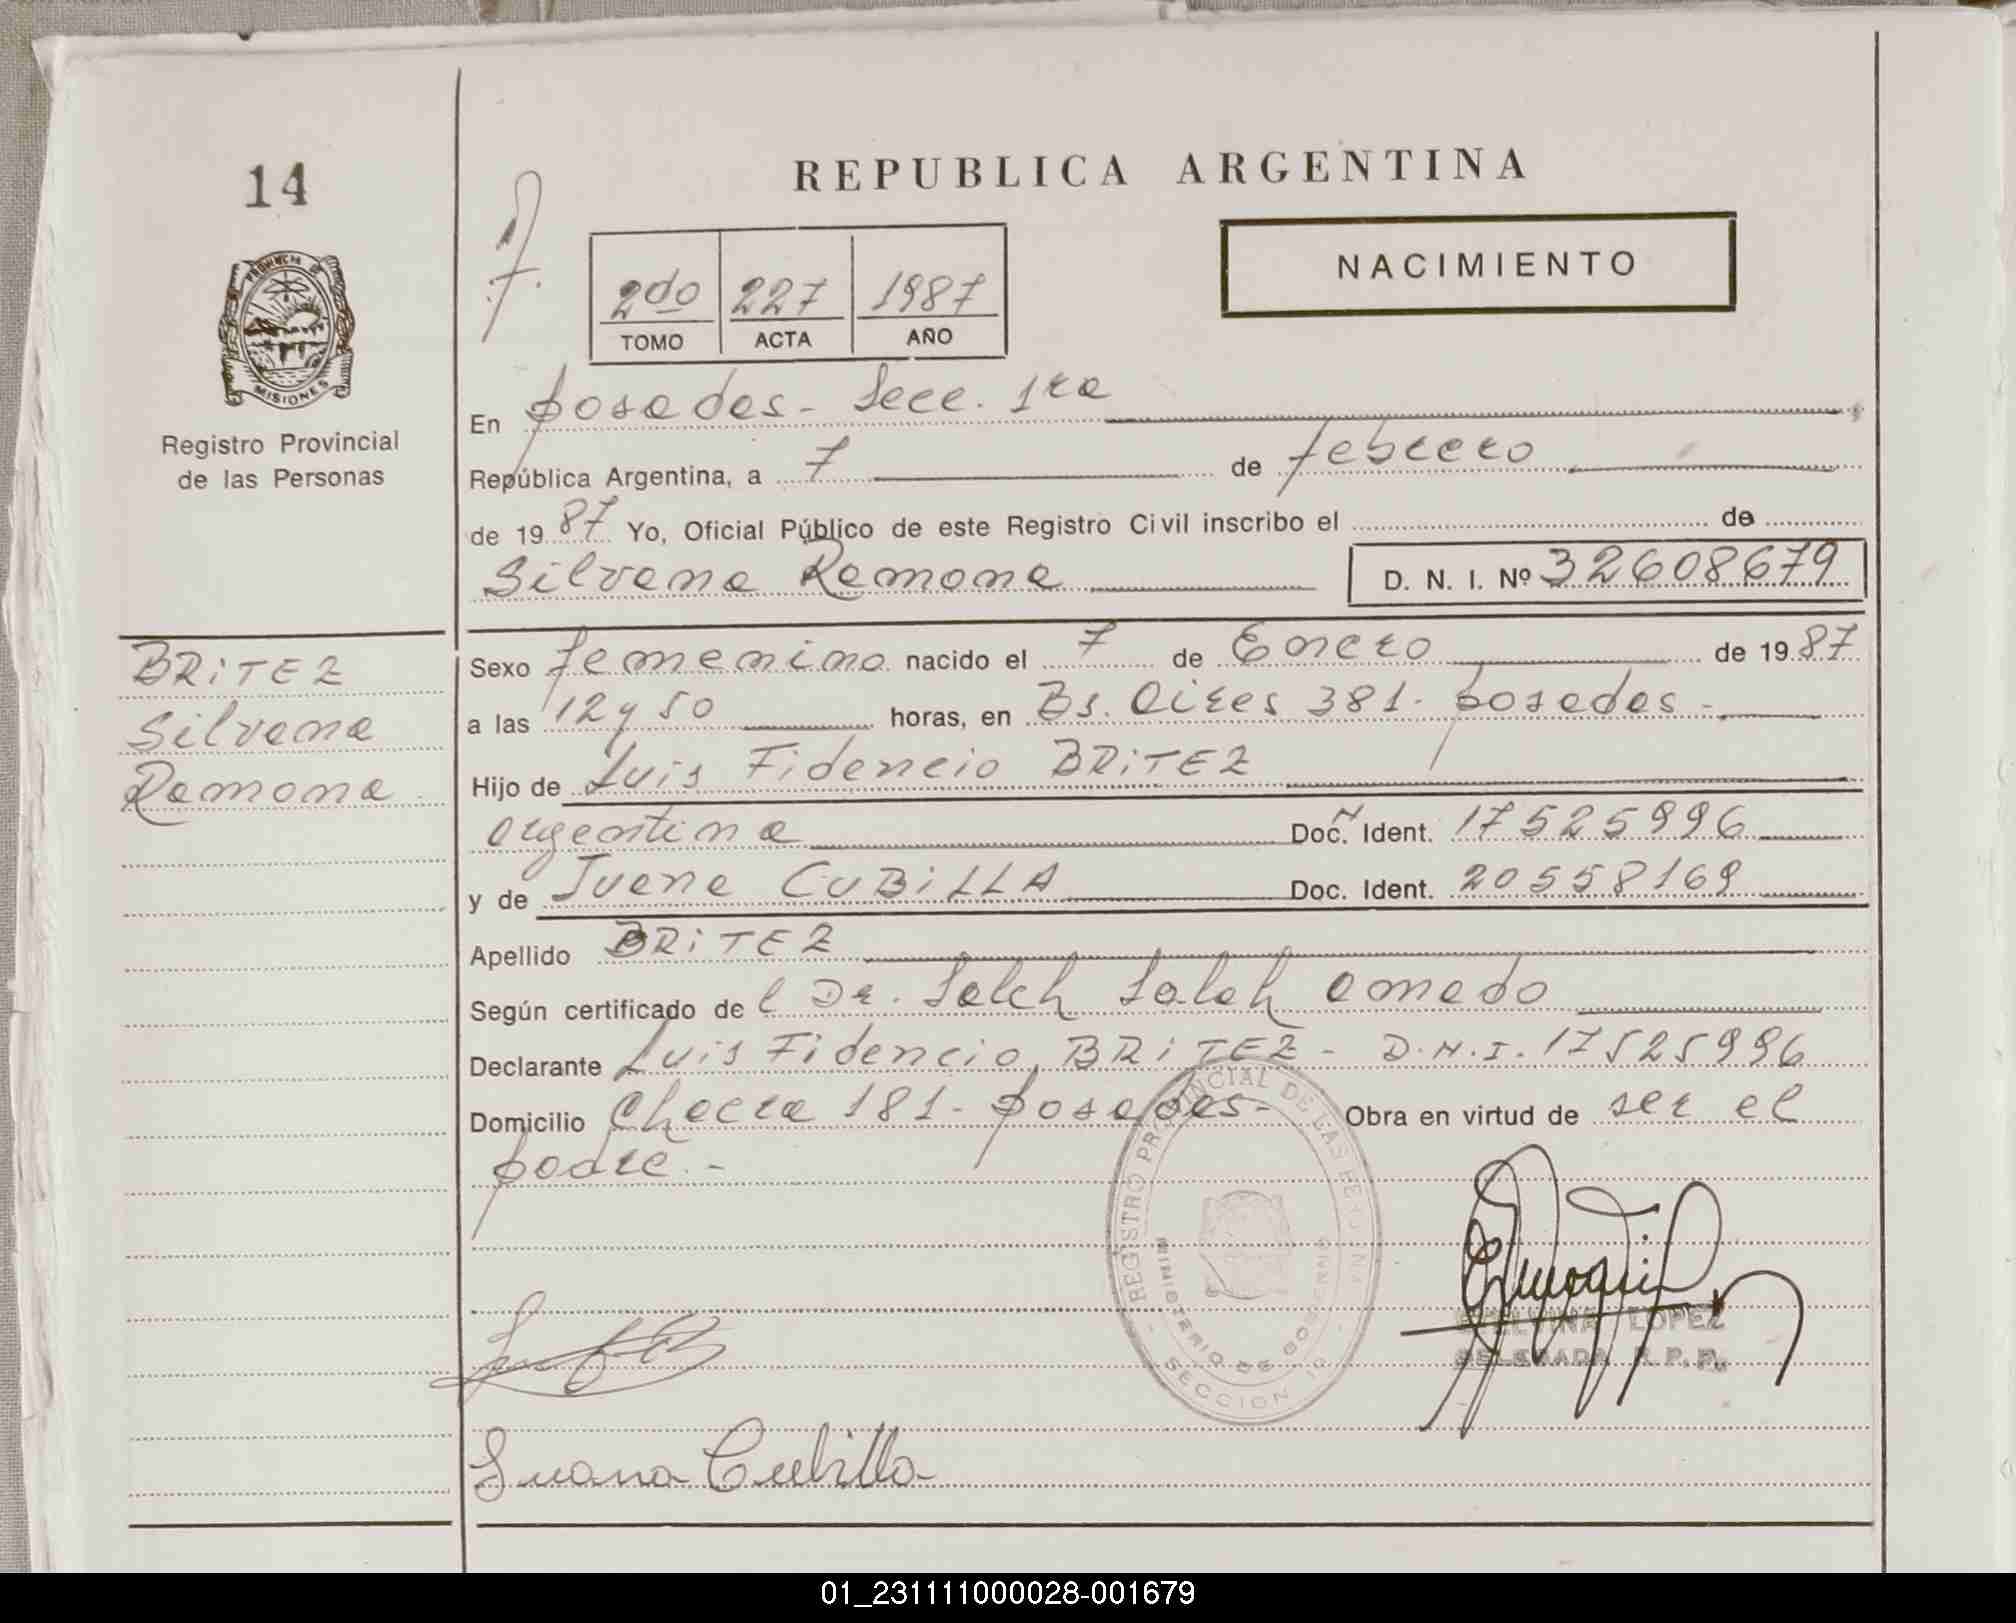 14
PROVINCIA DE
MISIONES
Registro Provincial
de las Personas
REPUBLICA ARGENTINA
NACIMIENTO
2do 227 1987
TOMO ACTA AÑO
En Posadas - Secc. 1ra
República Argentina, a 7 de febrero
de 1987 Yo, Oficial Público de este Registro Civil inscribo el de
Silvana Ramona D. N. I. Nº 32608679
BRITEZ
Silvana
Ramona
Sexo femenino nacido el 7 de Enero de 1987
a las 12 y 50 horas, en Bs. Aires 381. Posadas -
Hijo de Luis Fidencio BRITEZ
argentina Doc. Ident. 17525996
y de Juana CUBILLA Doc. Ident. 20558169
Apellido BRITEZ
Según certificado del Dr. Saleh Salah Amado
Declarante Luis Fidencio BRITEZ - D.N.I. 17525996
Domicilio Chacra 181 - Posadas - Obra en virtud de ser el
padre. -
REGISTRO PROVINCIAL DE LAS PERSONAS
MINISTERIO DE GOBIERNO
SECCION 1ª
LOPEZ
DELEGADA R.P.P.
Juana Cubilla
01_231111000028-001679